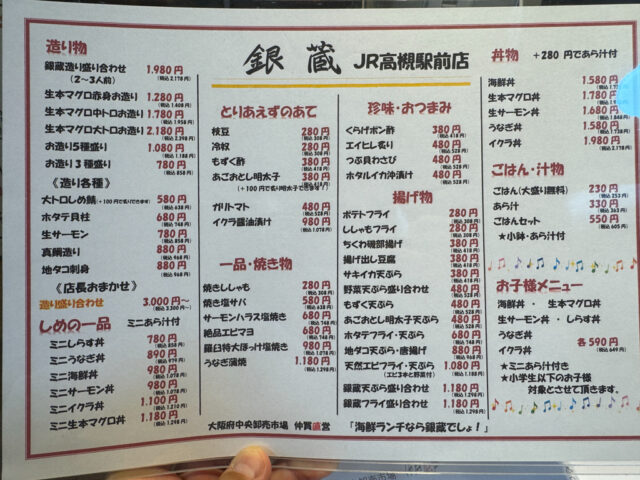 銀蔵 JR高槻駅前店
造り物
銀蔵造り盛り合わせ 1.980円
(2〜3人前) (税込 2.178円)
生本マグロ赤身お造り 1.280円
(税込 1.408円)
生本マグロ中トロお造り 1.780円
(税込 1.958円)
生本マグロ大トロお造り 2.180円
(税込 2.398円)
お造り5種盛り 1.080円
(税込 1.188円)
お造り3種盛り 780円
(税込 858円)
《造り各種》
大トロしめ鯖(+100円で炙りできます) 580円
(税込 638円)
ホタテ貝柱 680円
(税込 748円)
生サーモン 780円
(税込 858円)
真鯛造り 880円
(税込 968円)
地タコ刺身 880円
(税込 968円)
《店長おまかせ》
造り盛り合わせ 3.000円〜
(税込 3.300円〜)
しめの一品 ミニあら汁付
ミニしらす丼 780円
(税込 858円)
ミニうなぎ丼 890円
(税込 979円)
ミニ海鮮丼 980円
(税込 1.078円)
ミニサーモン丼 980円
(税込 1.078円)
ミニイクラ丼 1.100円
(税込 1.210円)
ミニ生本マグロ丼 1.180円
(税込 1.298円)
とりあえずのあて
枝豆 280円
(税込 308円)
冷奴 280円
(税込 308円)
もずく酢 380円
(税込 418円)
あごおとし明太子 380円
(税込 418円)
(+100円で炙り明太子できます!)
ガリトマト 480円
(税込 528円)
イクラ醤油漬け 980円
(税込 1.078円)
一品・焼き物
焼きししゃも 280円
(税込 308円)
焼き塩サバ 580円
(税込 638円)
サーモンハラス塩焼き 680円
(税込 748円)
絶品エビマヨ 680円
(税込 748円)
羅臼特大ほっけ塩焼き 980円
(税込 1.078円)
うなぎ蒲焼 1.180円
(税込 1.298円)
珍味・おつまみ
くらげポン酢 380円
(税込 418円)
エイヒレ炙り 480円
(税込 528円)
つぶ貝わさび 480円
(税込 528円)
ホタルイカ沖漬け 480円
(税込 528円)
揚げ物
ポテトフライ 280円
(税込 308円)
ししゃもフライ 280円
(税込 308円)
ちくわ磯部揚げ 380円
(税込 418円)
揚げ出し豆腐 380円
(税込 418円)
サキイカ天ぷら 380円
(税込 418円)
野菜天ぷら盛り合わせ 480円
(税込 528円)
もずく天ぷら 480円
(税込 528円)
あごおとし明太子天ぷら 480円
(税込 528円)
ホタテフライ・天ぷら 680円
(税込 748円)
地ダコ天ぷら・唐揚げ 880円
(税込 968円)
天然エビフライ・天ぷら 1.080円
(エビ3本と野菜付) (税込 1.188円)
銀蔵天ぷら盛り合わせ 1.180円
(税込 1.298円)
銀蔵フライ盛り合わせ 1.180円
(税込 1.298円)
丼物 +280円であら汁付
海鮮丼 1.580円
生本マグロ丼 1.780円
生サーモン丼 1.680円
(税込 1.848円)
うなぎ丼 1.580円
(税込 1.738円)
イクラ丼 1.980円
ごはん・汁物
ごはん(大盛り無料) 230円
(税込 253円)
あら汁 330円
(税込 363円)
ごはんセット 550円
(税込 605円)
★小鉢・あら汁付
お子様メニュー
海鮮丼 ・ 生本マグロ丼
生サーモン丼 ・ しらす丼
うなぎ丼
イクラ丼 各590円
(税込 649円)
★ミニあら汁付き
★小学生以下のお子様
対象とさせて頂きます。
大阪府中央卸売市場 仲買直営 「海鮮ランチなら銀蔵でしょ!」